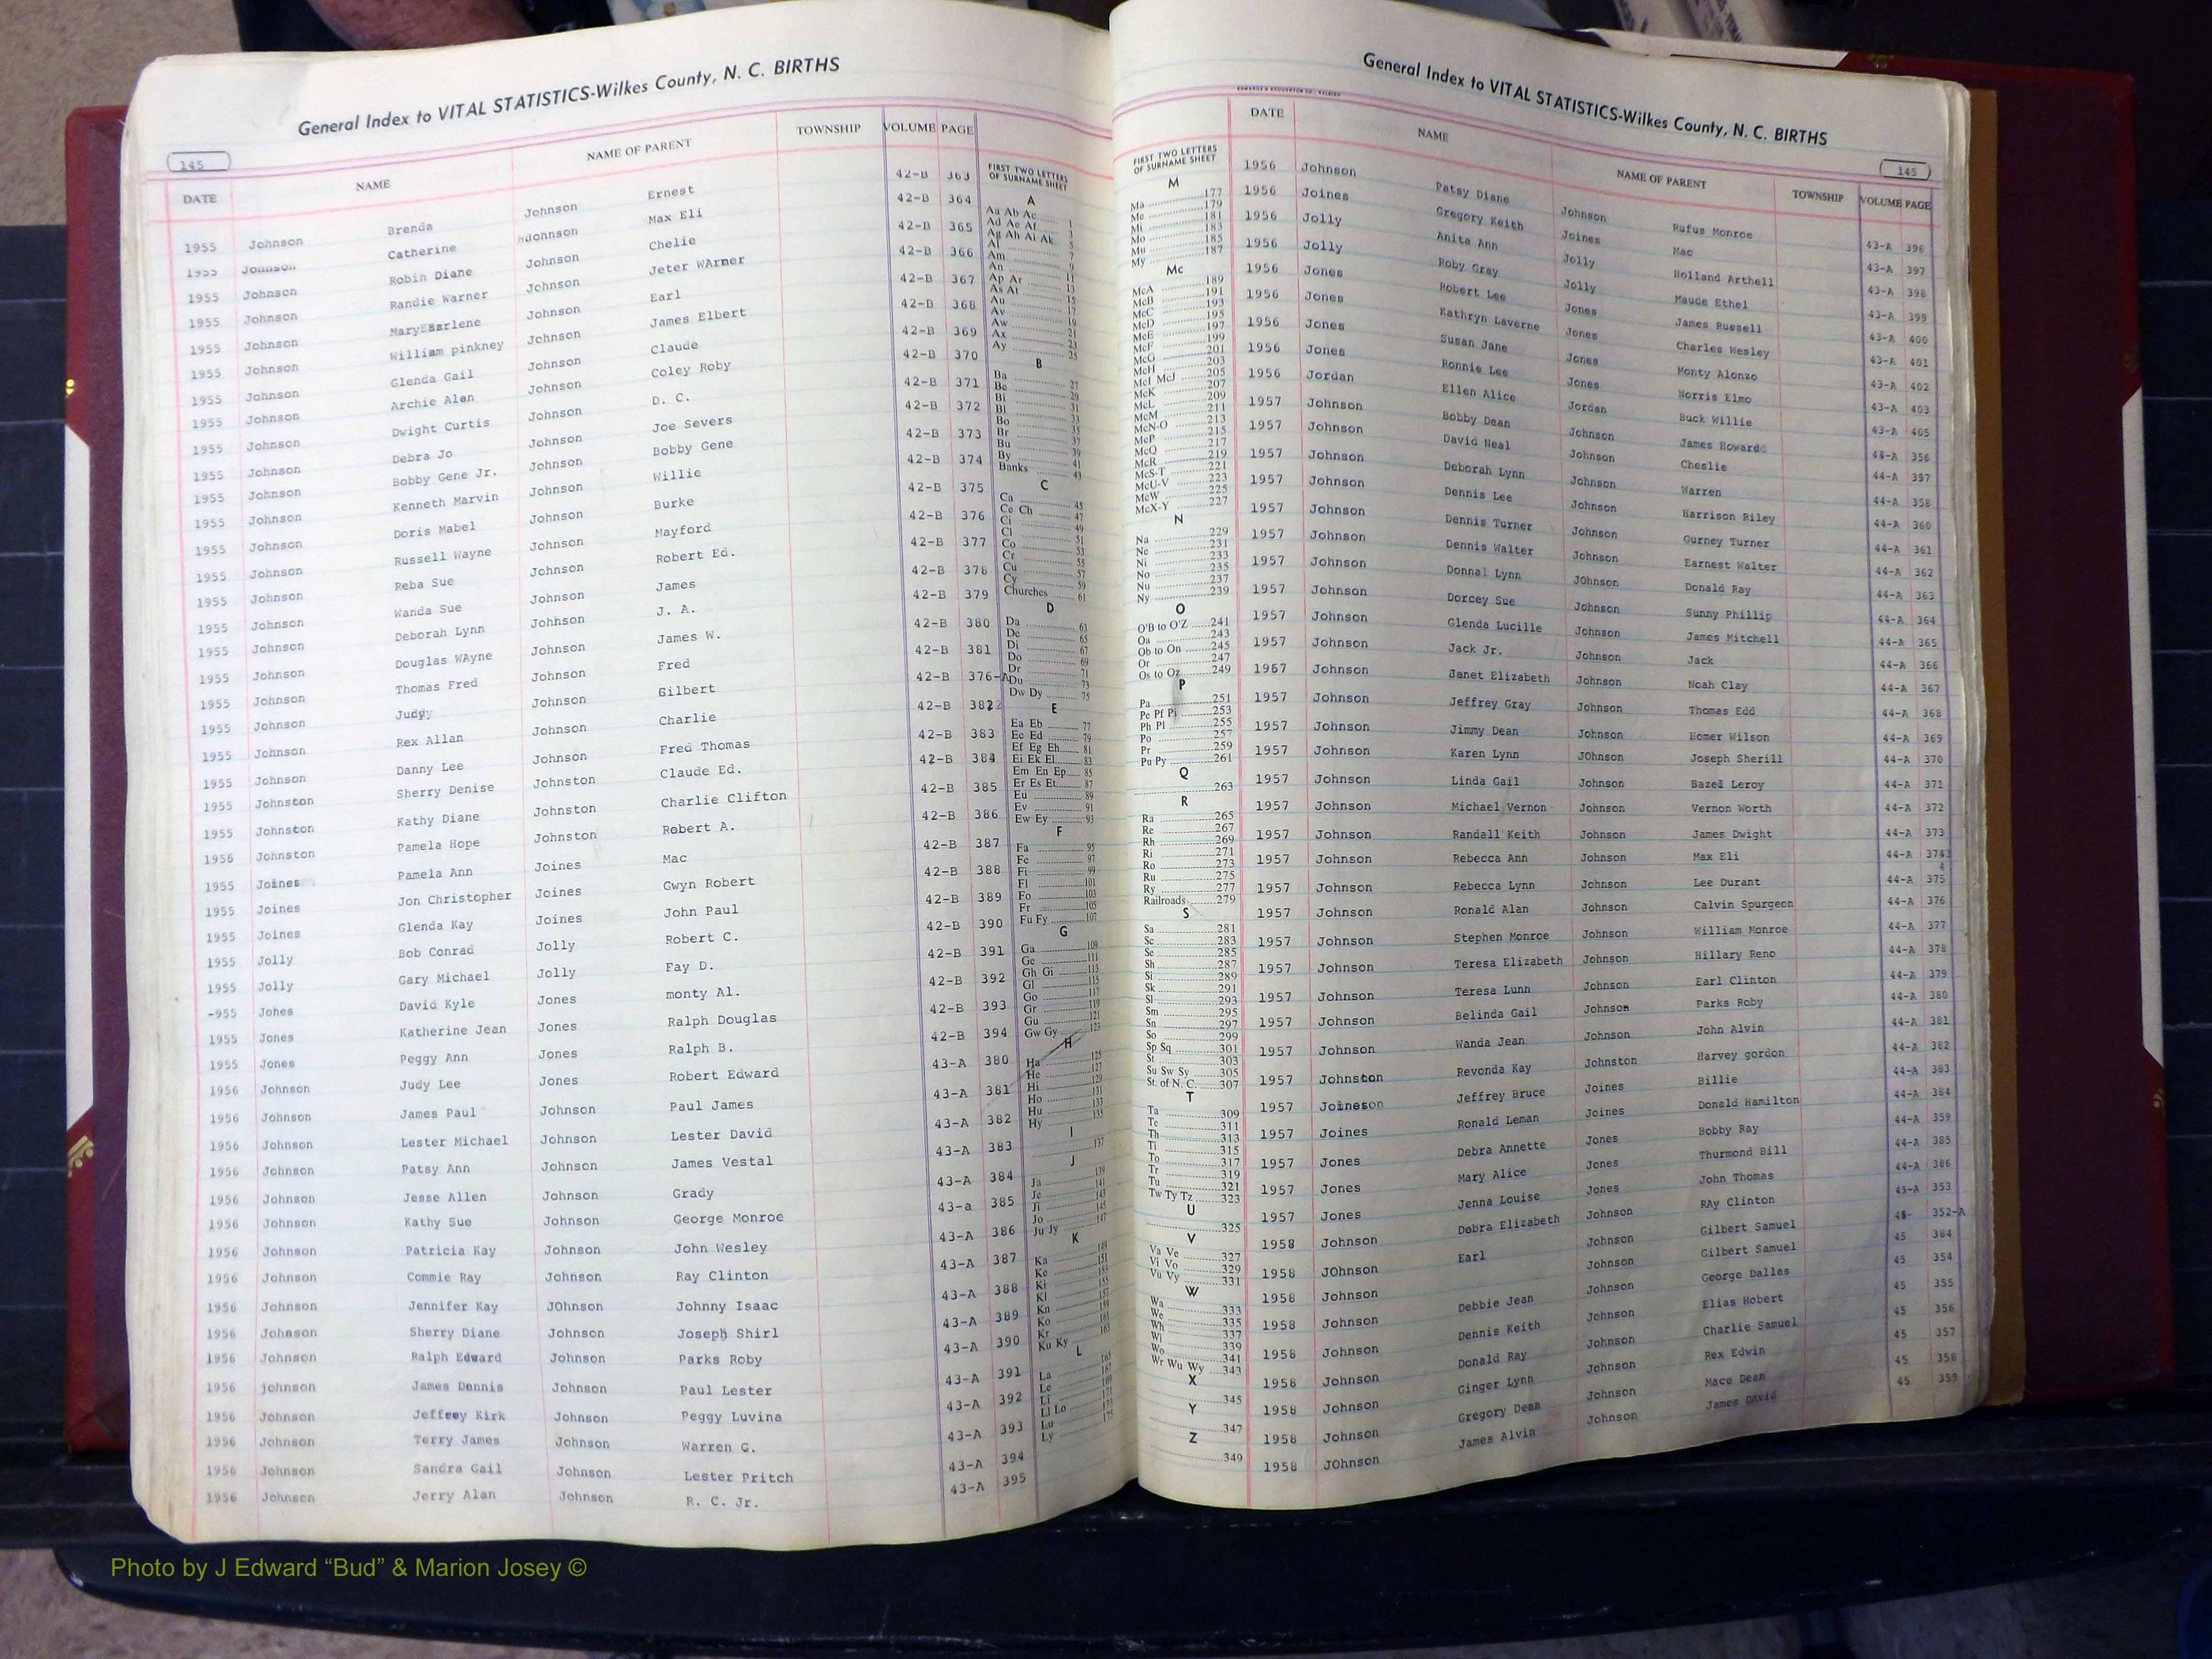 General Index to VITAL STATISTICS-Wilkes County, N. C. BIRTHS
145
DATE NAME NAME OF PARENT TOWNSHIP VOLUME PAGE
1955 Johnson Brenda Johnson Ernest 42-B 363
1955 Johnson Catherine Johnson Max Eli 42-B 364
1955 Johnson Robin Diane Johnson Chelie 42-B 365
1955 Johnson Randie Warner Johnson Jeter WArner 42-B 366
1955 Johnson MaryEEarlene Johnson Earl 42-B 367
1955 Johnson William pinkney Johnson James Elbert 42-B 368
1955 Johnson Glenda Gail Johnson Claude 42-B 369
1955 Johnson Archie Alen Johnson Coley Roby 42-B 370
1955 Johnson Dwight Curtis Johnson D. C. 42-B 371
1955 Johnson Debra Jo Johnson Joe Severs 42-B 372
1955 Johnson Bobby Gene Jr. Johnson Bobby Gene 42-B 373
1955 Johnson Kenneth Marvin Johnson Willie 42-B 374
1955 Johnson Doris Mabel Johnson Burke 42-B 375
1955 Johnson Russell Wayne Johnson Mayford 42-B 376
1955 Johnson Reba Sue Johnson Robert Ed. 42-B 377
1955 Johnson Wanda Sue Johnson James 42-B 378
1955 Johnson Deborah Lynn Johnson J. A. 42-B 379
1955 Johnson Douglas WAyne Johnson James W. 42-B 380
1955 Johnson Thomas Fred Johnson Fred 42-B 381
1955 Johnson Judy Johnson Gilbert 42-B 376-A
1955 Johnson Rex Allan Johnson Charlie 42-B 382
1955 Johnson Danny Lee Johnson Fred Thomas 42-B 383
1955 Johnston Sherry Denise Johnston Claude Ed. 42-B 384
1955 Johnston Kathy Diane Johnston Charlie Clifton 42-B 385
1956 Johnston Pamela Hope Johnston Robert A. 42-B 386
1955 Joines Pamela Ann Joines Mac 42-B 387
1955 Joines Jon Christopher Joines Gwyn Robert 42-B 388
1955 Joines Glenda Kay Joines John Paul 42-B 389
1955 Jolly Bob Conrad Jolly Robert C. 42-B 390
1955 Jolly Gary Michael Jolly Fay D. 42-B 391
-955 Johes David Kyle Jones monty Al. 42-B 392
1955 Jones Katherine Jean Jones Ralph Douglas 42-B 393
1955 Jones Peggy Ann Jones Ralph B. 42-B 394
1956 Johnson Judy Lee Jones Robert Edward 43-A 380
1956 Johnson James Paul Johnson Paul James 43-A 381
1956 Johnson Lester Michael Johnson Lester David 43-A 382
1956 Johnson Patsy Ann Johnson James Vestal 43-A 383
1956 Johnson Jesse Allen Johnson Grady 43-A 384
1956 Johnson Kathy Sue Johnson George Monroe 43-a 385
1956 Johnson Patricia Kay Johnson John Wesley 43-A 386
1956 Johnson Commie Ray Johnson Ray Clinton 43-A 387
1956 Johnson Jennifer Kay JOhnson Johnny Isaac 43-A 388
1956 Johnson Sherry Diane Johnson Joseph Shirl 43-A 389
1956 Johnson Ralph Edward Johnson Parks Roby 43-A 390
1956 johnson James Dennis Johnson Paul Lester 43-A 391
1956 Johnson Jeffrey Kirk Johnson Peggy Luvina 43-A 392
1956 Johnson Terry James Johnson Warren G. 43-A 393
1956 Johnson Sandra Gail Johnson Lester Pritch 43-A 394
1956 Johnson Jerry Alan Johnson R. C. Jr. 43-A 395
FIRST TWO LETTERS
OF SURNAME SHEET
A
Aa Ab Ac 1
Ad Ae Af 3
Ag Ah Ai Ak 5
Al 7
Am 9
An 11
Ap Ar 13
As At 15
Au 17
Av 19
Aw 21
Ax 23
Ay 25
B
Ba 27
Be 29
Bi 31
Bl 33
Bo 35
Br 37
Bu 39
By 41
Banks 43
C
Ca 45
Ce Ch 47
Ci 49
Cl 51
Co 53
Cr 55
Cu 57
Cy 59
Churches 61
D
Da 63
De 65
Di 67
Do 69
Dr 71
Du 73
Dw Dy 75
E
Ea Eb 77
Ec Ed 79
Ef Eg Eh 81
Ei Ek El 83
Em En Ep 85
Er Es Et 87
Eu 89
Ev 91
Ew Ey 93
F
Fa 95
Fe 97
Fi 99
Fl 101
Fo 103
Fr 105
Fu Fy 107
G
Ga 109
Ge 111
Gh Gi 113
Gl 115
Go 117
Gr 119
Gu 121
Gw Gy 123
H
Ha 125
He 127
Hi 129
Ho 131
Hu 133
Hy 135
I
137
J
Ja 139
Je 141
Ji 143
Jo 145
Ju Jy 147
K
Ka 149
Ke 151
Ki 153
Kl 155
Kn 157
Ko 159
Kr 161
Ku Ky 163
L
La 165
Le 167
Li 169
Ll Lo 171
Lu 173
Ly 175
General Index to VITAL STATISTICS-Wilkes County, N. C. BIRTHS
145
FIRST TWO LETTERS
OF SURNAME SHEET
M
Ma 177
Me 179
Mi 181
Mo 183
Mu 185
My 187
Mc
McA 189
McB 191
McC 193
McD 195
McE 197
McF 199
McG 201
McH 203
McI McJ 205
McK 207
McL 209
McM 211
McN-O 213
McP 215
McQ 217
McR 219
McS-T 221
McU-V 223
McW 225
McX-Y 227
N
Na 229
Ne 231
Ni 233
No 235
Nu 237
Ny 239
O
O'B to O'Z 241
Oa 243
Ob to On 245
Or 247
Os to Oz 249
P
Pa 251
Pe Pf Pi 253
Ph Pl 255
Po 257
Pr 259
Pu Py 261
Q
263
R
Ra 265
Re 267
Rh 269
Ri 271
Ro 273
Ru 275
Ry 277
Railroads 279
S
Sa 281
Sc 283
Se 285
Sh 287
Si 289
Sk 291
Sl 293
Sm 295
Sn 297
So 299
Sp Sq 301
St 303
Su Sw Sy 305
St. of N. C. 307
T
Ta 309
Te 311
Th 313
Ti 315
To 317
Tr 319
Tu 321
Tw Ty Tz 323
U
325
V
Va Ve 327
Vi Vo 329
Vu Vy 331
W
Wa 333
We 335
Wh 337
Wi 339
Wo 341
Wr Wu Wy 343
X
345
Y
347
Z
349
DATE NAME NAME OF PARENT TOWNSHIP VOLUME PAGE
1956 Johnson Patsy Diane Johnson Rufus Monroe 43-A 396
1956 Joines Gregory Keith Joines Mac 43-A 397
1956 Jolly Anita Ann Jolly Holland Arthell 43-A 398
1956 Jolly Roby Gray Jolly Maude Ethel 43-A 399
1956 Jones Robert Lee Jones James Russell 43-A 400
1956 Jones Kathryn Laverne Jones Charles Wesley 43-A 401
1956 Jones Susan Jane Jones Monty Alonzo 43-A 402
1956 Jones Ronnie Lee Jones Norris Elmo 43-A 403
1956 Jordan Ellen Alice Jordan Buck Willie 43-A 405
1957 Johnson Bobby Dean Johnson James Howard 44-A 356
1957 Johnson David Neal Johnson Cheslie 44-A 357
1957 Johnson Deborah Lynn Johnson Warren 44-A 358
1957 Johnson Dennis Lee Johnson Harrison Riley 44-A 360
1957 Johnson Dennis Turner Johnson Gurney Turner 44-A 361
1957 Johnson Dennis Walter Johnson Earnest Walter 44-A 362
1957 Johnson Donnal Lynn JOhnson Donald Ray 44-A 363
1957 Johnson Dorcey Sue Johnson Sunny Phillip 44-A 364
1957 Johnson Glenda Lucille Johnson James Mitchell 44-A 365
1957 Johnson Jack Jr. Johnson Jack 44-A 366
1967 Johnson Janet Elizabeth Johnson Noah Clay 44-A 367
1957 Johnson Jeffrey Gray Johnson Thomas Edd 44-A 368
1957 Johnson Jimmy Dean Johnson Homer Wilson 44-A 369
1957 Johnson Karen Lynn JOhnson Joseph Sherill 44-A 370
1957 Johnson Linda Gail Johnson Bazel Leroy 44-A 371
1957 Johnson Michael Vernon Johnson Vernon Worth 44-A 372
1957 Johnson Randall Keith Johnson James Dwight 44-A 373
1957 Johnson Rebecca Ann Johnson Max Eli 44-A 374
1957 Johnson Rebecca Lynn Johnson Lee Durant 44-A 375
1957 Johnson Ronald Alan Johnson Calvin Spurgeon 44-A 376
1957 Johnson Stephen Monroe Johnson William Monroe 44-A 377
1957 Johnson Teresa Elizabeth Johnson Hillary Reno 44-A 378
1957 Johnson Teresa Lunn Johnson Earl Clinton 44-A 379
1957 Johnson Belinda Gail Johnson Parks Roby 44-A 380
1957 Johnson Wanda Jean Johnson John Alvin 44-A 381
1957 Johnston Revonda Kay Johnston Harvey gordon 44-A 382
1957 Joineson Jeffrey Bruce Joines Billie 44-A 383
1957 Joines Ronald Leman Joines Donald Hamilton 44-A 384
1957 Jones Debra Annette Jones Bobby Ray 44-A 359
1957 Jones Mary Alice Jones Thurmond Bill 44-A 385
1957 Jones Jenna Louise Jones John Thomas 44-A 386
1958 Johnson Debra Elizabeth Johnson RAy Clinton 45-A 353
1958 JOhnson Earl Johnson Gilbert Samuel 45- 352-A
1958 Johnson Johnson Gilbert Samuel 45 384
1958 Johnson Debbie Jean Johnson George Dallas 45 354
1958 Johnson Dennis Keith Johnson Elias Hobert 45 355
1958 Johnson Donald Ray Johnson Charlie Samuel 45 356
1958 Johnson Ginger Lynn Johnson Rex Edwin 45 357
1958 Johnson Gregory Dean Johnson Mace Dean 45 358
1958 JOhnson James Alvin Johnson James DAvid 45 359
Photo by J Edward “Bud” & Marion Josey ©